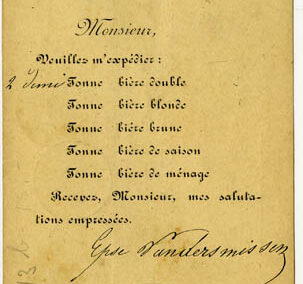 Monsieur,
Veuillez m'expédier :
2 demi Tonne bière double
Tonne bière blonde
Tonne bière brune
Tonne bière de saison
Tonne bière de ménage
Recevez, Monsieur, mes saluta-
tions empressées.
Epse Vandersmissen